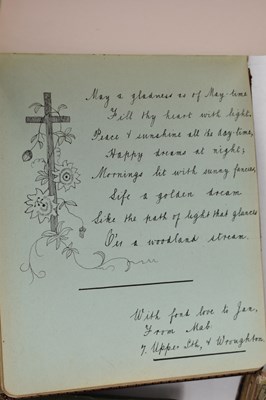 May a gladness as of May-time
Fill thy heart with light,
Peace & sunshine all the day-time,
Happy dreams at night;
Mornings lit with sunny fancies,
Life a golden dream
Like the path of light that glances
O'er a woodland stream.
With fond love to Jan,
From Mab
7. Upper Sth, & Wroughton